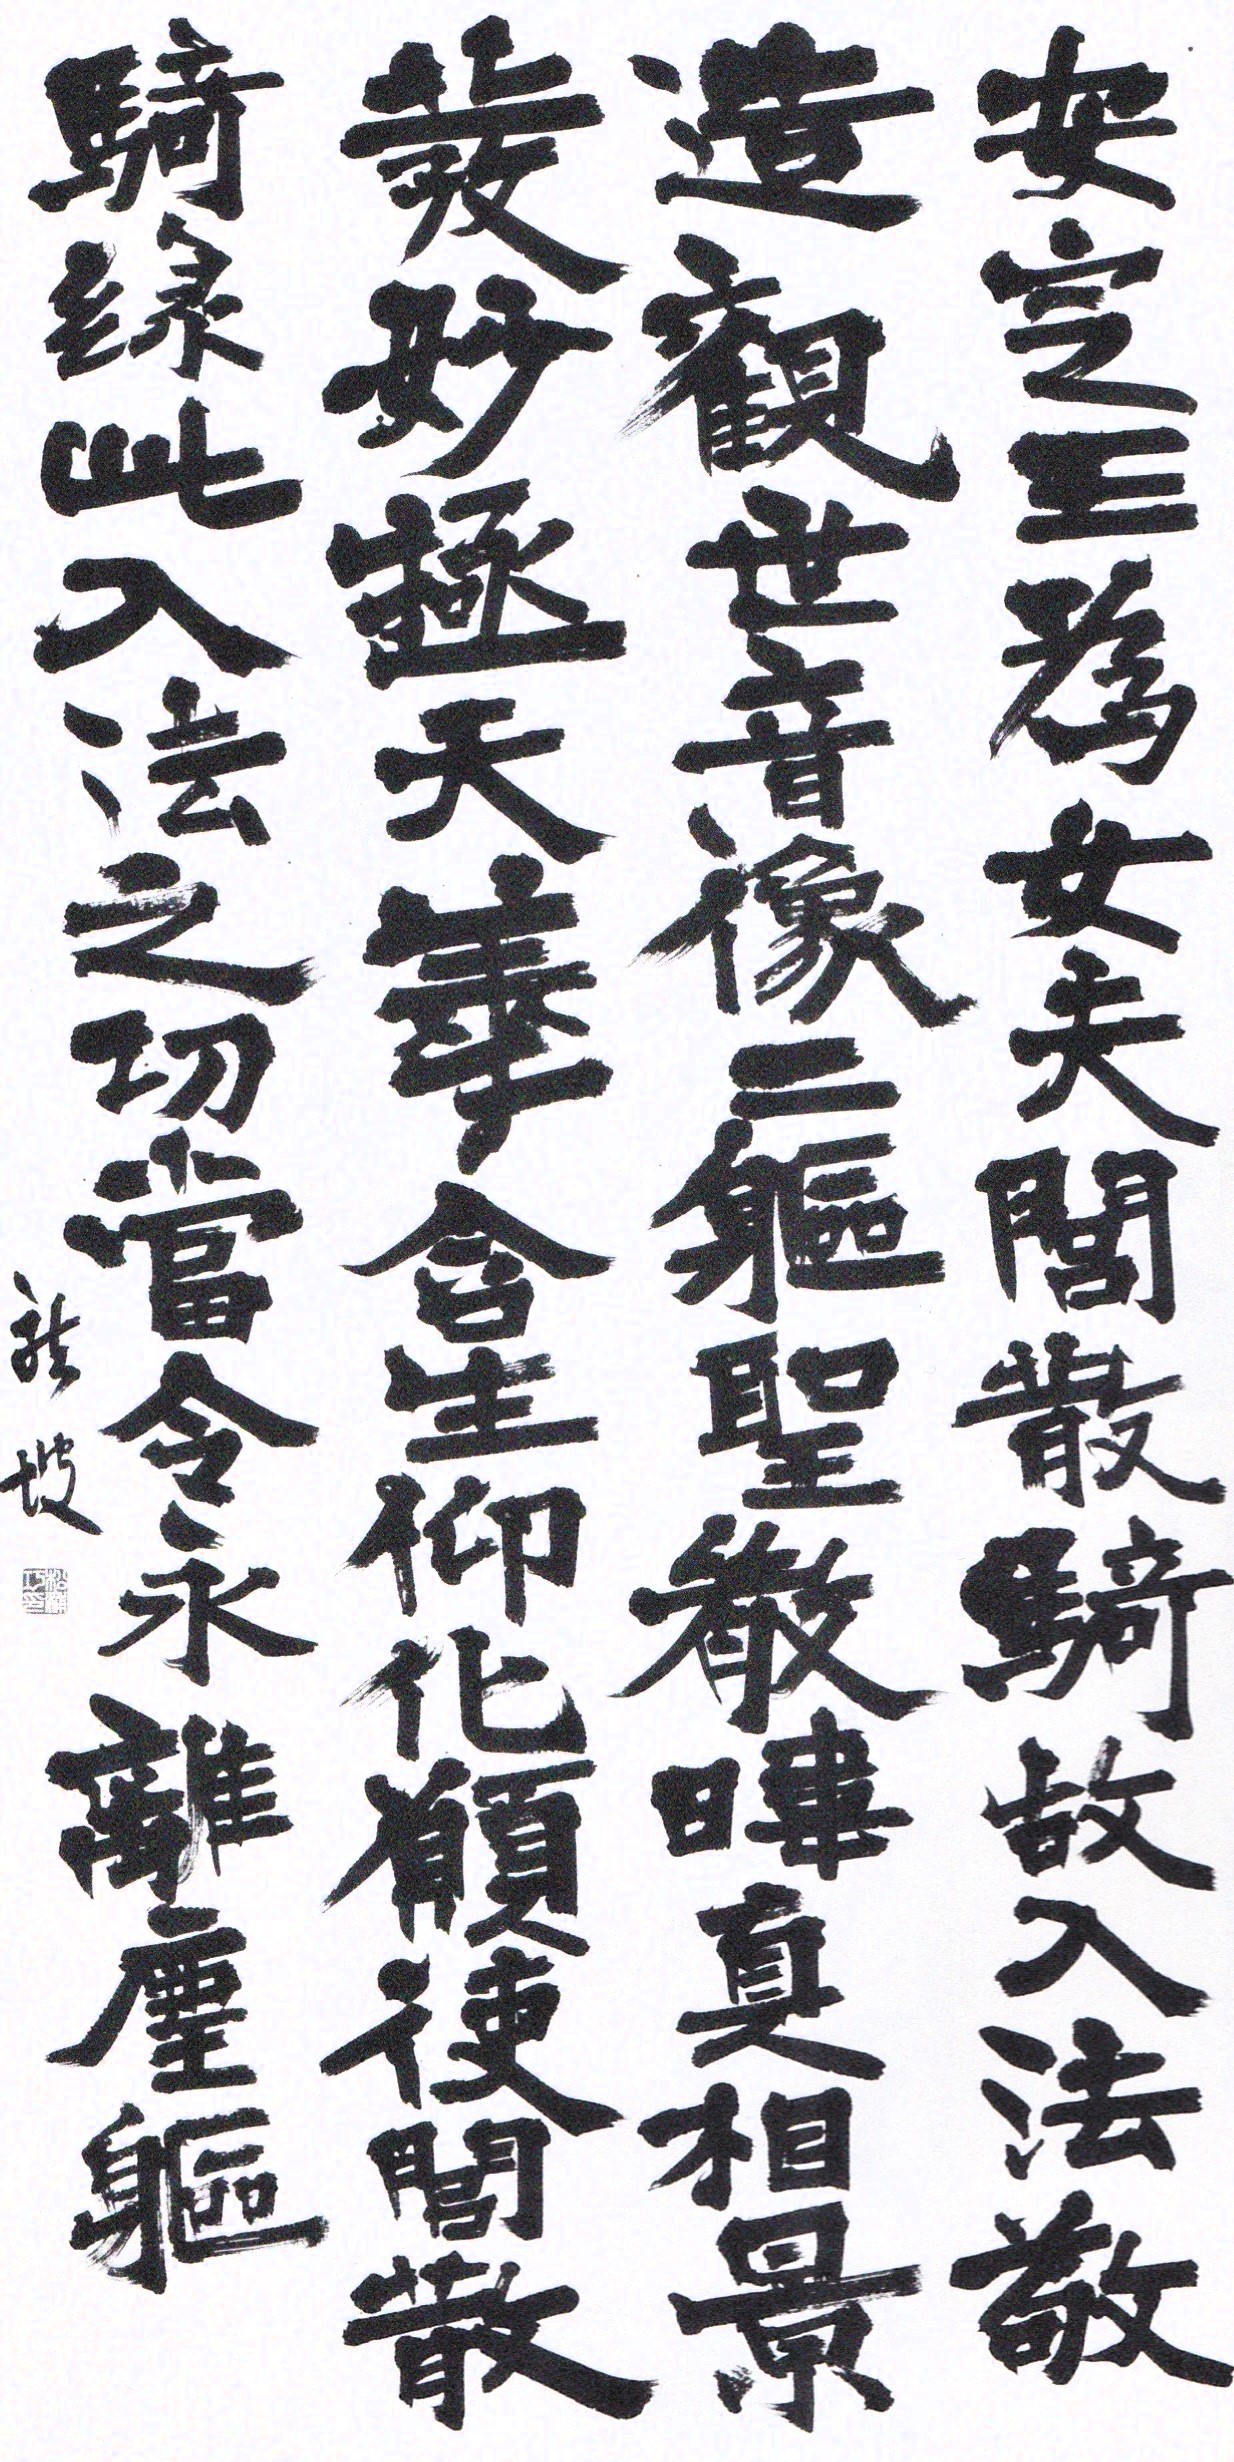 安定王為女夫閭散騎故入法敬
造觀世音像二軀聖教暉真相景
發妙極天華含生仰化願使閭散
騎緣此入法之功當令永離塵軀
龍坡